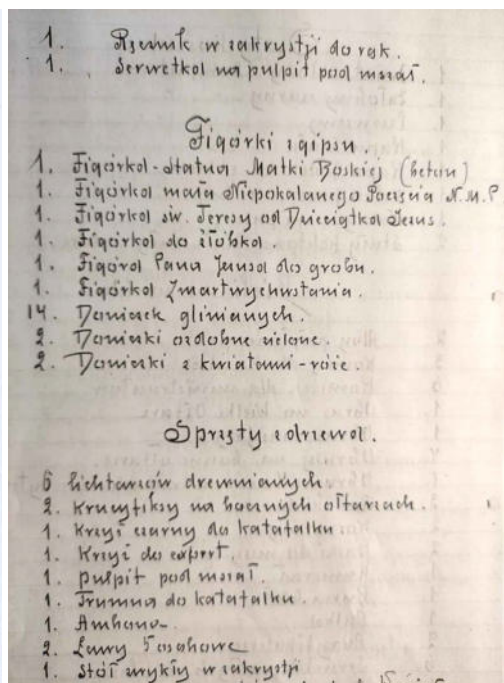 1. Ręcznik w zakrystji do rąk.
1. Serwetka na pulpit pod mszał.
Figórki z gipsu.
1. Figórka-statua Matki Boskiej (beton)
1. Figórka mała Niepokalanego Poczęcia N.M.P
1. Figórka św. Teresy od Dzieciątka Jezus.
1. Figórka do żłóbka.
1. Figóra Pana Jezusa do grobu.
1. Figórka Zmartwychwstania.
14. Doniczek glinianych.
2. Doniczki ozdobne zielone.
2. Doniczki z kwiatami-róże.
Sprzęty z drzewa.
6 lichtarzów drewnianych
2. Krucyfiksy na bocznych ołtarzach.
1. Krzyż czarny do katafalku
1. Krzyż do export.
1. pulpit pod mszał.
1. Trumna do katafalku.
1. Ambona-
2. Ławy 5 osobowe
1. Stół zwykły w zakrystji